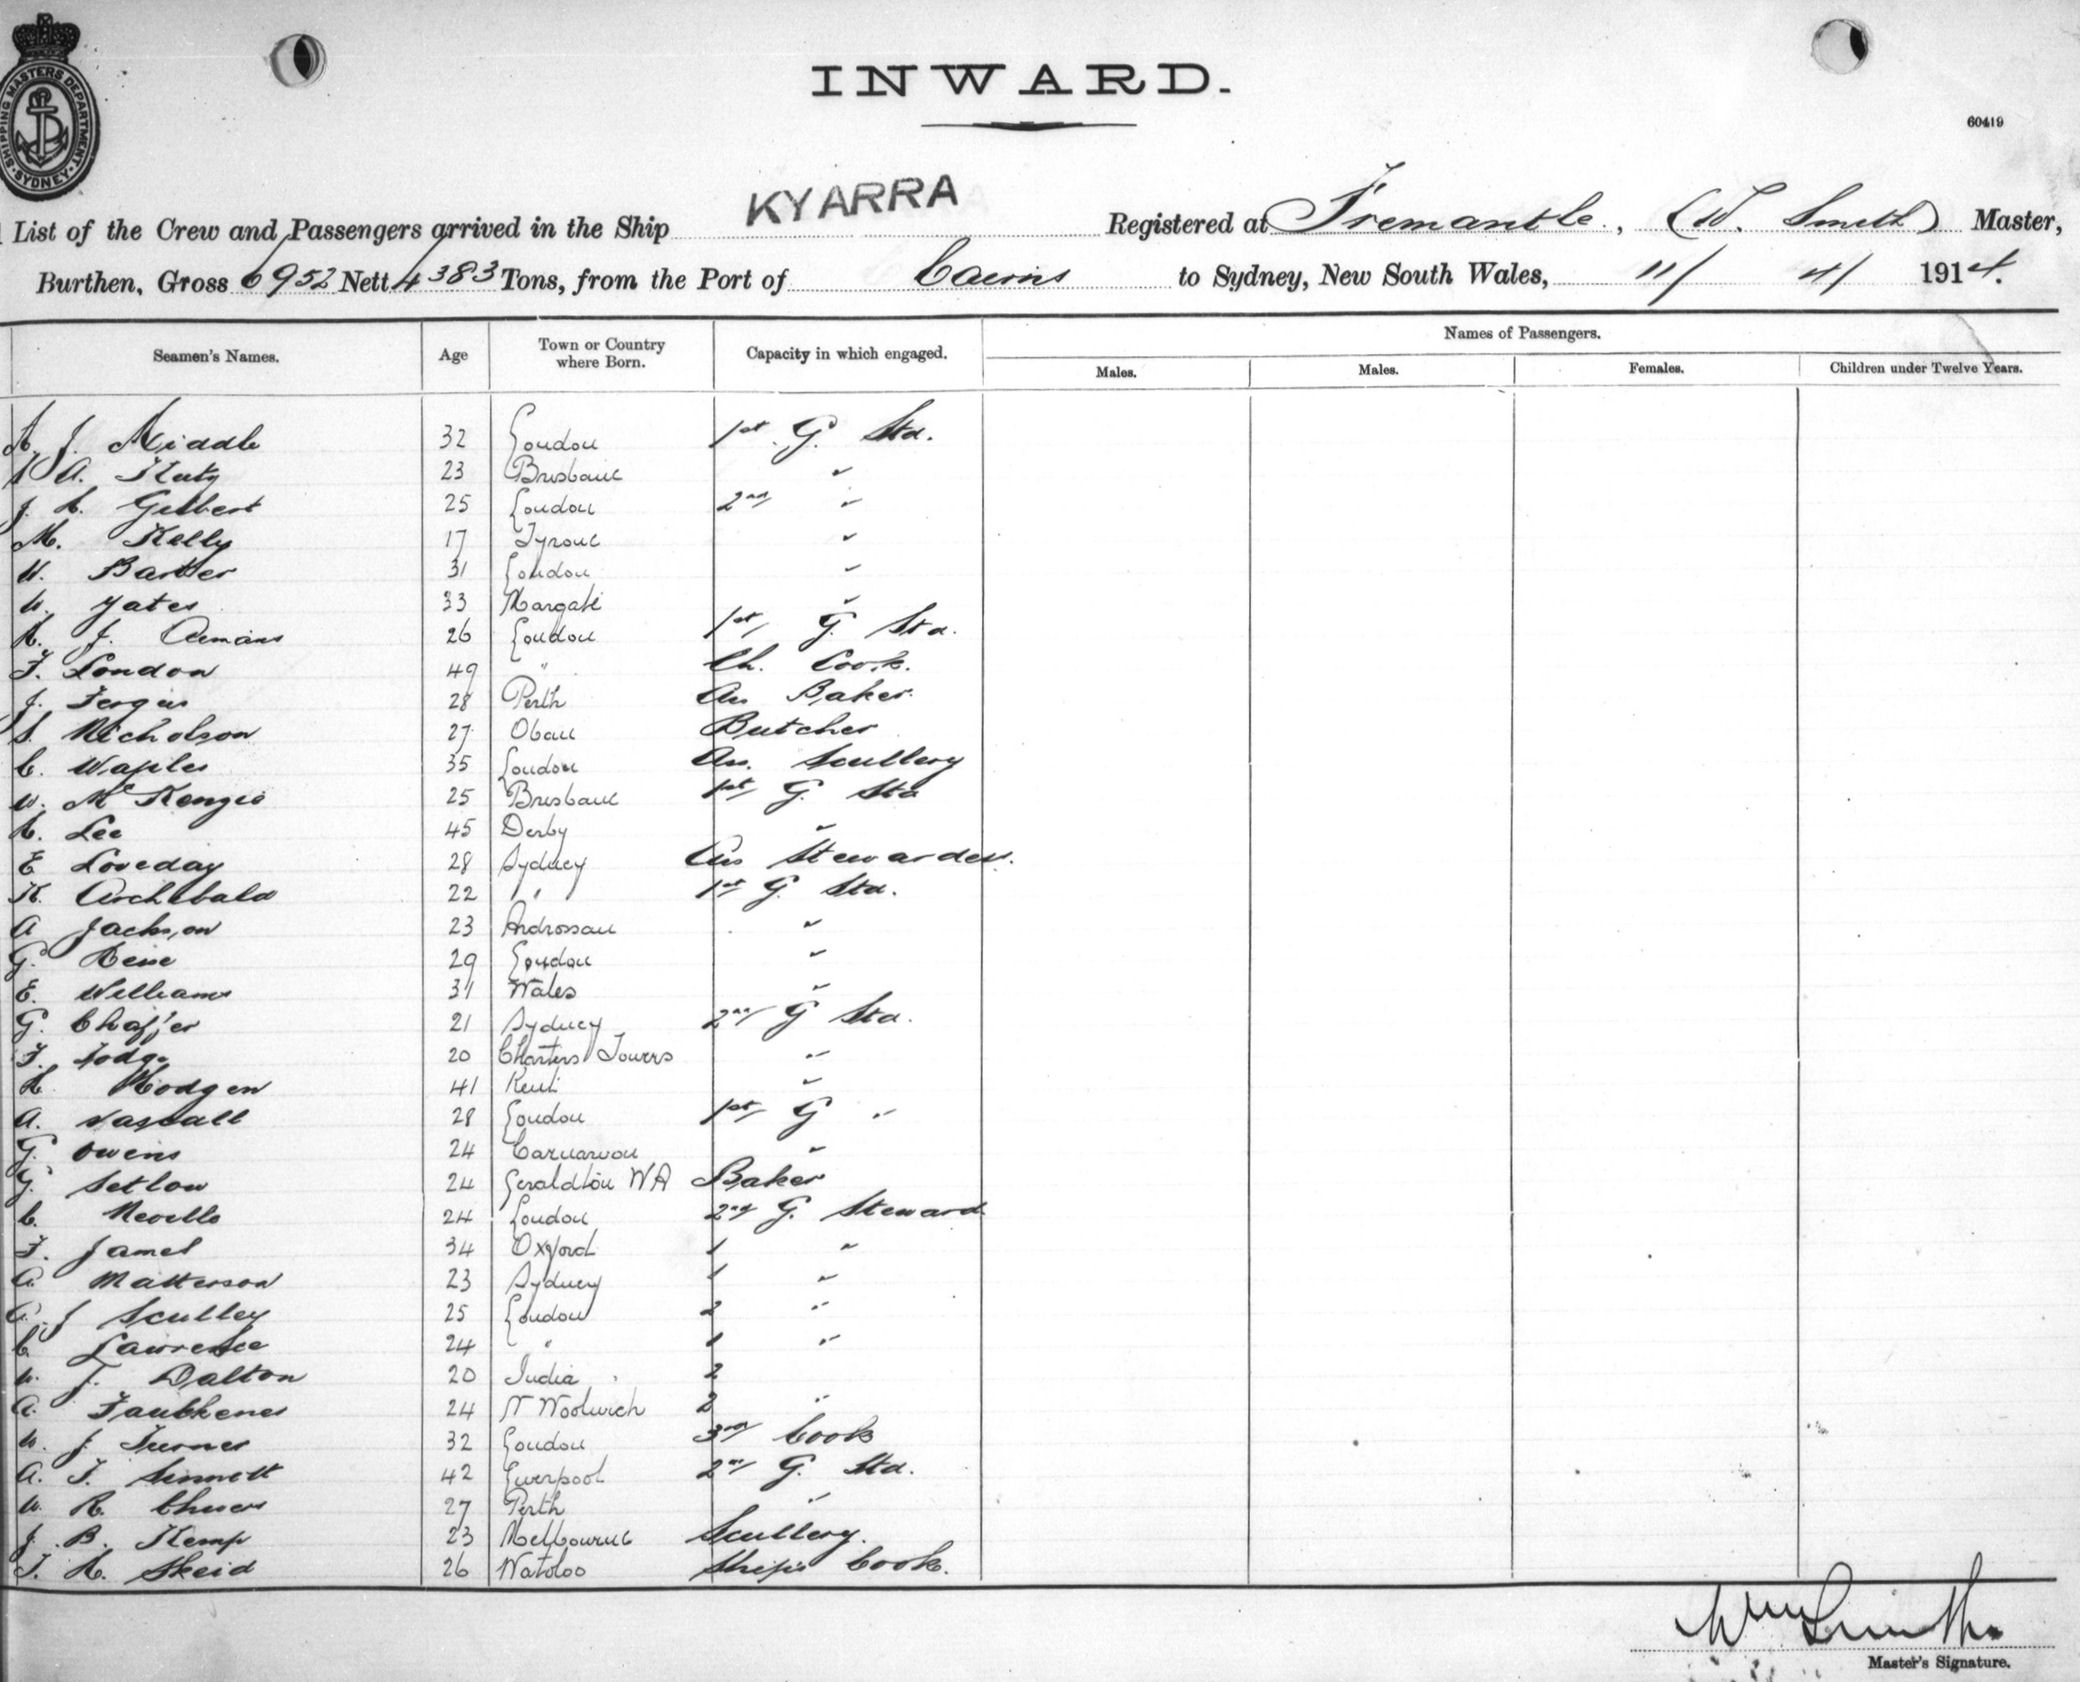 SHIPPING MASTERS DEPARTMENT SYDNEY
INWARD.
60419
List of the Crew and Passengers arrived in the Ship KYARRA Registered at Fremantle, (W. Smith) Master,
Burthen, Gross 6952 Nett 4383 Tons, from the Port of Cairns to Sydney, New South Wales, 11/ 4/ 1914.
Names of Passengers.
Seamen's Names. Age Town or Country where Born. Capacity in which engaged. Males. Males. Females. Children under Twelve Years.
J. Middle 32 London 1st G. Std.
A. 23 Brisbane "
J. H. Gilbert 25 London 2nd "
M. Kelly 17 Tyrone "
W. Barber 31 London "
W. Yates 33 Margate "
H. J. 26 London 1st G. Std.
F. London 49 " Ch. Cook.
J. Fergus 28 Perth As Baker.
S. Nicholson 27 Oban Butcher
C. Waples 35 London As. Scullery
W. McKenzie 25 Brisbane 1st G. Std
H. Lee 45 Derby "
E Loveday 28 Sydney As Stewardess.
K. Archibald 22 " 1st G. Std.
A Jackson 23 Ardrossan "
G. 29 London "
E. Williams 31 Wales "
G. Chaffer 21 Sydney 2nd G Std.
F. 20 Charters Towers "
H. Hodgen 41 Kent "
A. 28 London 1st G "
G. Owens 24 Carnarvon "
G. Setlow 24 Geraldton WA Baker
C. Neville 24 London 2nd G. Steward.
F. James 34 Oxford 1 "
A. Matterson 23 Sydney 1 "
A. J Sculley 25 London 2 "
C. Lawrence 24 " 1 "
W. J. Dalton 20 India 2
A. 24 N Woolwich 2 "
W. J. Turner 32 London 3rd Cook
A. F. Sinnett 42 Liverpool 2nd G. Std.
W. R. 27 Perth "
J. B. Kemp 23 Melbourne Scullery.
J. H. Skeid 26 Ships Cook.
Wm Smith
Master's Signature.